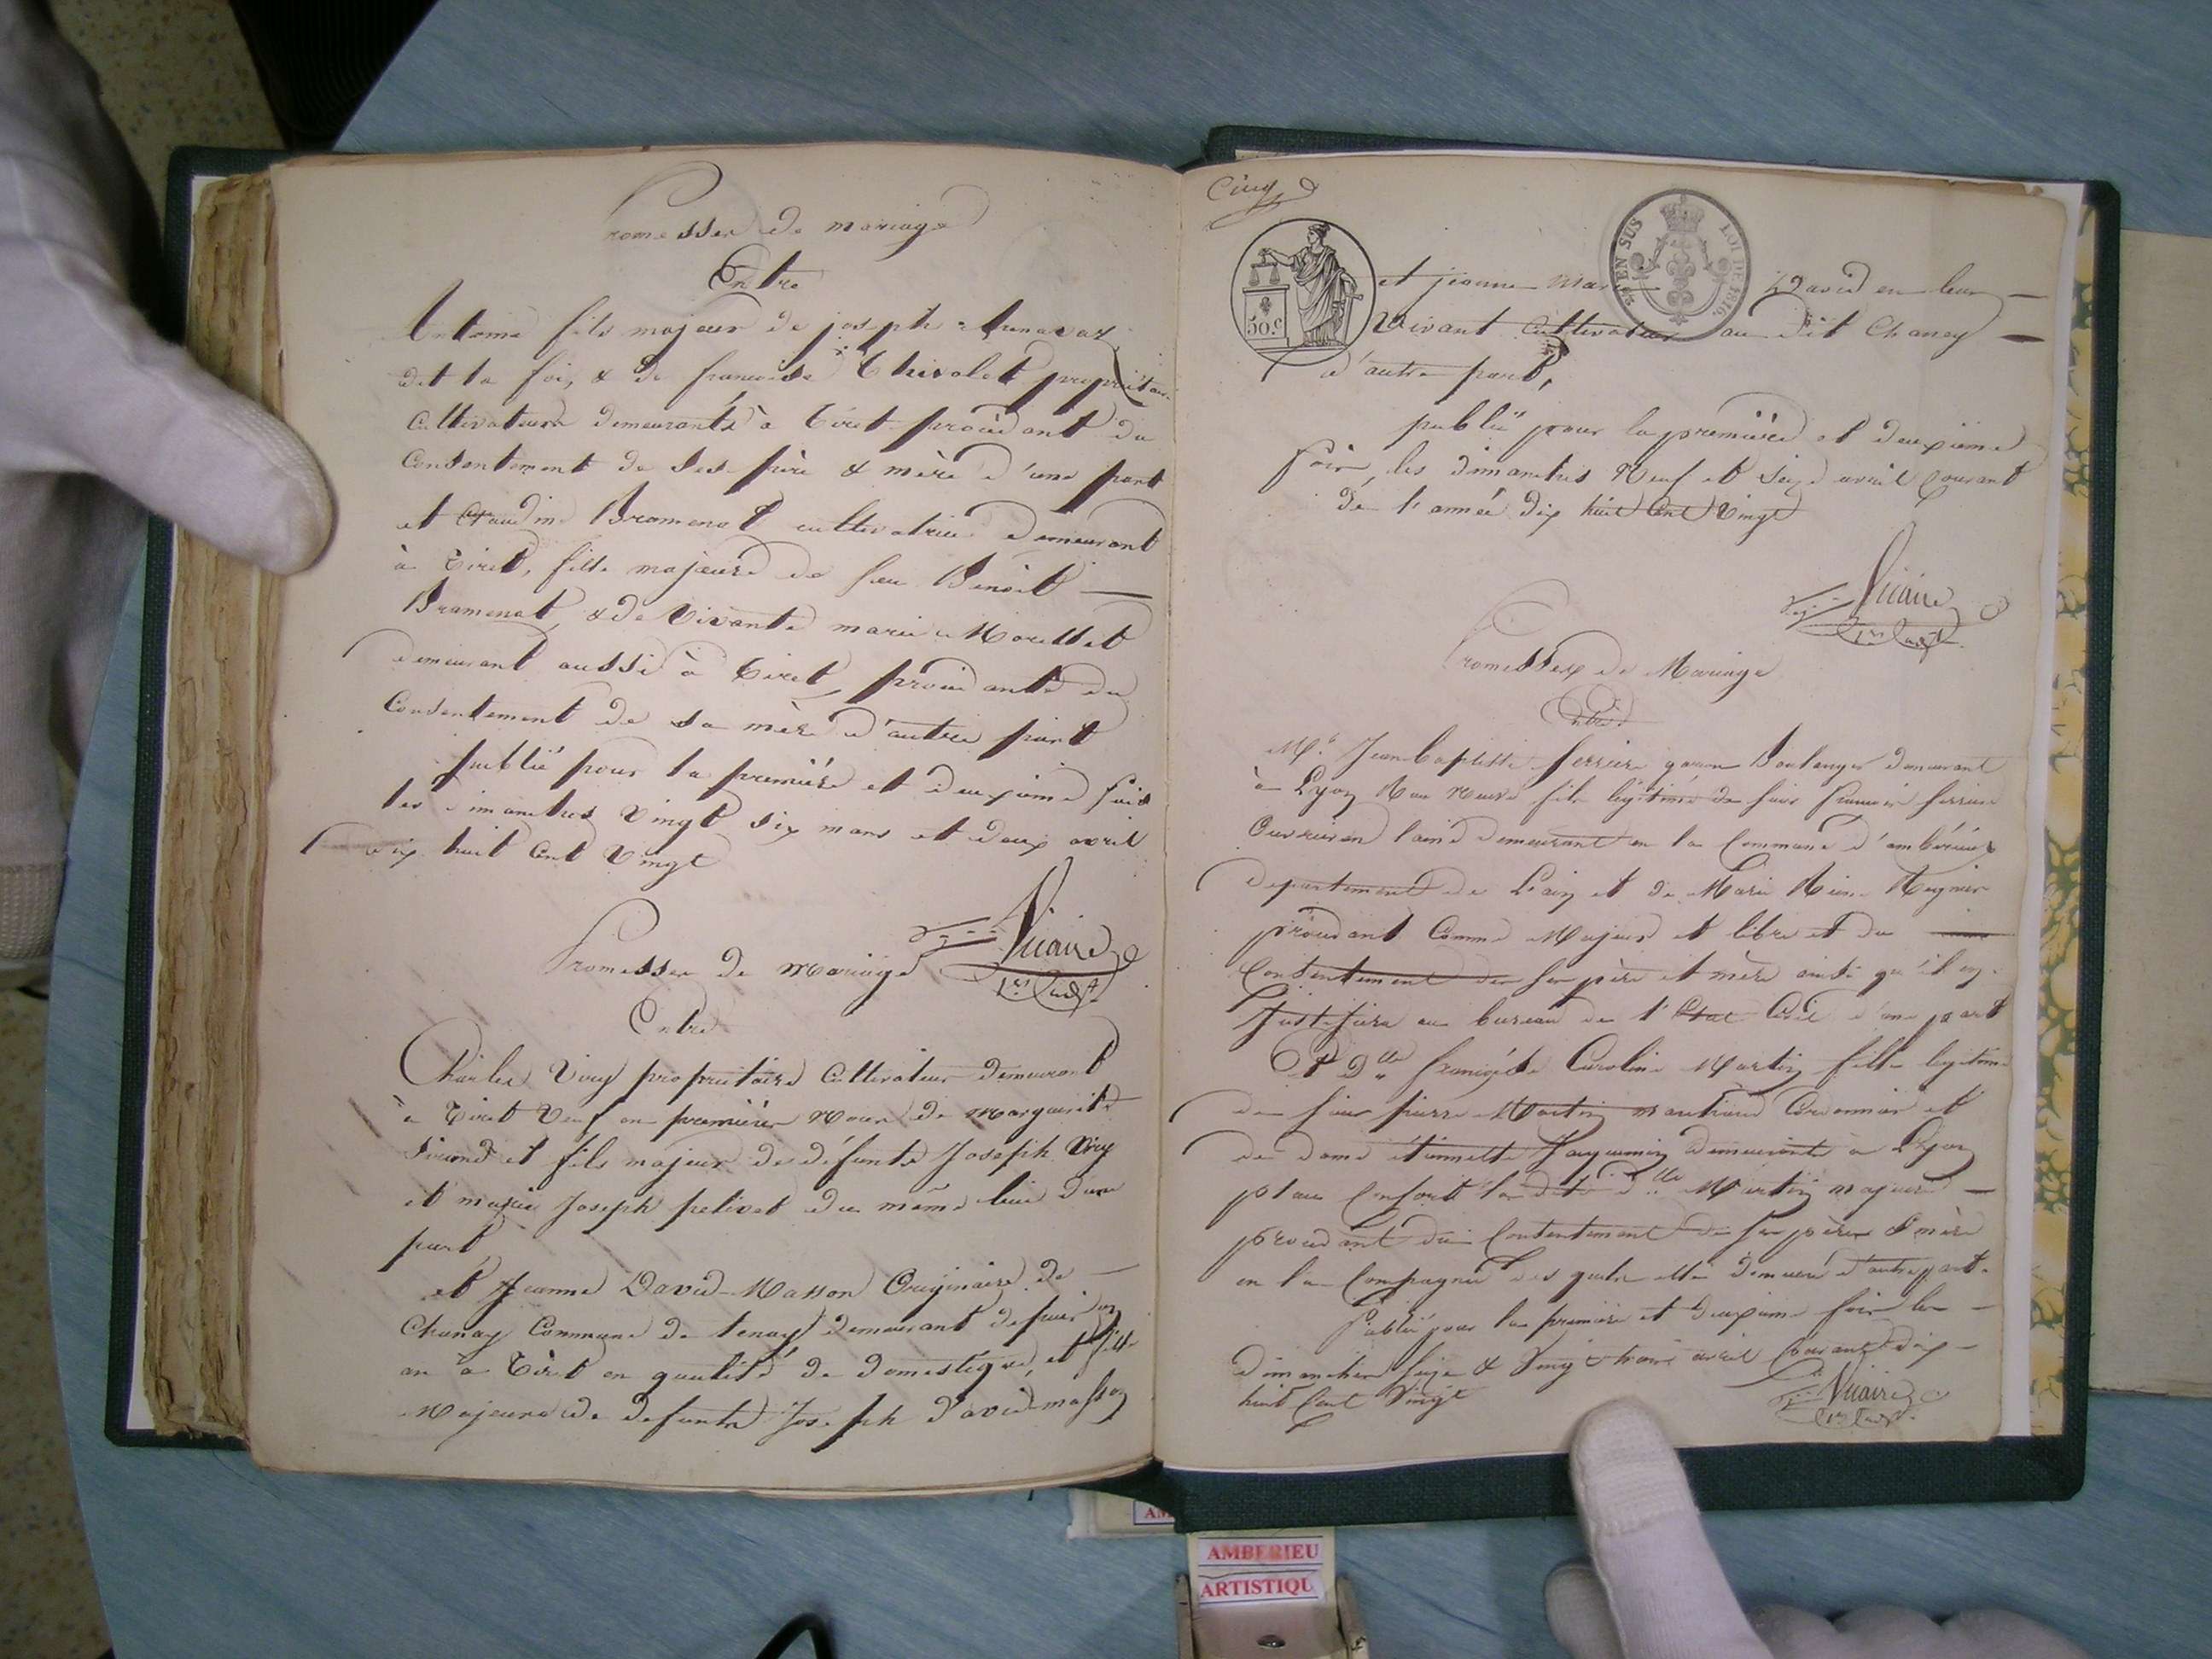 Promesses de mariage
Entre
Antoine fils majeur de joseph
dit la foi, & de francoise Thivolet propriétaires
Cultivateurs demeurants à Tiret procèdant du
Consentement de Ses père & mère d'une part
et Claudine Bramenat cultivatrice demeurant
à Tiret, fille majeure de feu Benoit
Bramenat, & de Vivante marie Morellet
demeurant aussi à Tiret, procèdante du
Consentement de sa mère d'autre part
publié pour la première et deuxième fois
les dimanches Vingt six mars et deux avril
dix huit Cent Vingt
Vicaire
1er adjt
Promesses de Mariage
Entre
Charles Viry propriétaire Cultivateur demeurant
à Tiret Veuf en premières Noces de Marguerite
et fils majeur de défunts Joseph Viry
et marie Joseph pelivet du même lieu d'une
part
et Jeanne David-Masson Originaire de
Chanay Commune de tenay demeurant depuis un
an à Tiret en qualité de domestique, et fille
Majeure de defunts Joseph David-masson
Cinq
EN SUS
LOI DE 1816.
50.c
et jeanne Mar David en leur
Vivant Cultivateurs au dit Chaney
d'autre part,
publié pour la première et deuxième
fois, les dimanches Neuf et Seize avril Courant
de l'année dix huit Cent Vingt
Vicaire
1er adjt
Promesses de Mariage
Entre
Mr. Jean-baptiste ferrière garçon Boulanger demeurant
à Lyon Rue Neuve fils légitime de sieur francois ferrière
Ouvrier en laine demeurant en la Commune d'ambérieux
departement de L'ain et de Marie Reine Reynier
procèdant Comme Majeur et libre et du
Consentement de ses père et mère ainsi qu'il en
Justifiera au bureau de l'État Civil d'une part
Et Dlle françoise Caroline Martin fille legitime
de sieur pierre Martin marchand Cordonnier et
de dame étiennette Jacquemin demeurante à Lyon
place Confort la dite dlle Martin majeure
procedant du Consentement de ses père & mère
en la Compagnie des quels elle demeure d'autre part.
Publié pour la première et deuxième fois les
dimanches seize & Vingt trois avril Courant dix
huit Cent Vingt
Vicaire
1er adjt.
AM
AMBERIEU
ARTISTIQU